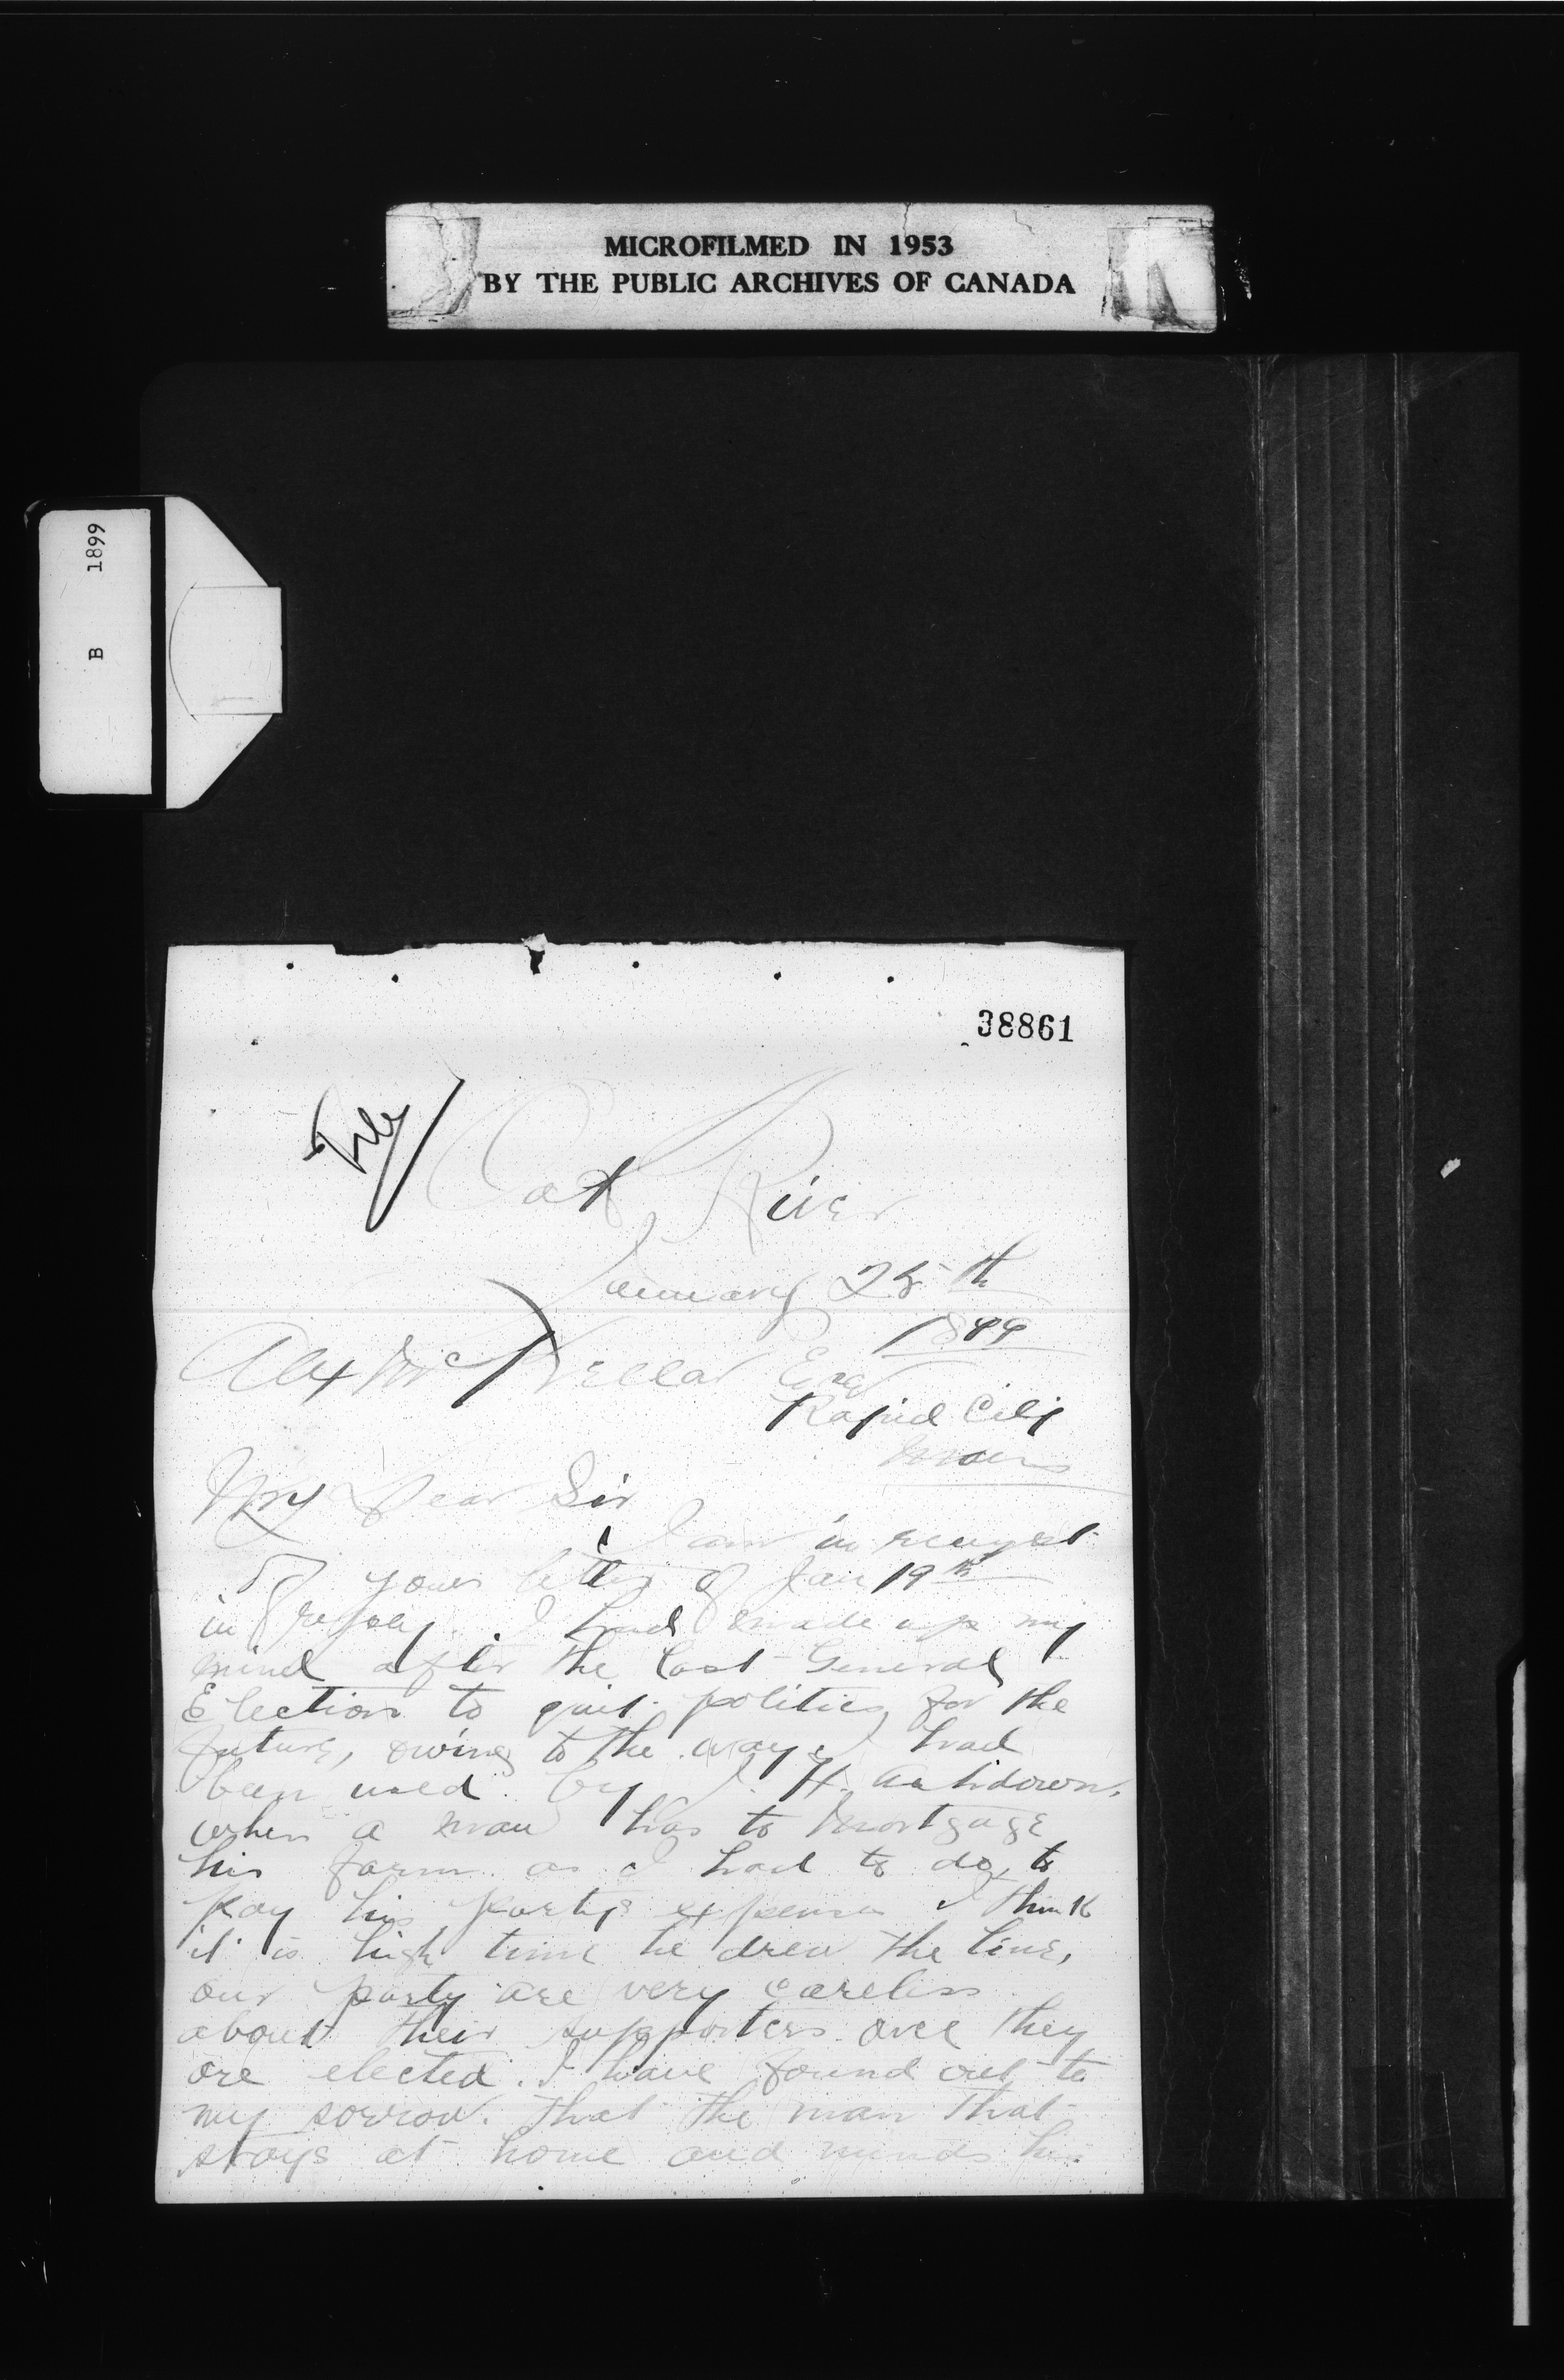 MICROFILMED IN 1953
BY THE PUBLIC ARCHIVES OF CANADA
B 1899
38861
Oak River
January 25th
1899
Alex McKellar Esq
Rapid City
Man
My Dear Sir
I am in receipt
of your letter of Jan 19th
in reply. I had made up my
mind after the last General
Election to quit politics for the
future, owing to the way I had
been used by J. H. Ashdown.
when a man has to Mortgage
his farm as I had to do, to
pay his party's expenses I think
it is high time he drew the line,
our party are very careless
about their supporters once they
are elected. I have found out to
my sorrow. that the man that
stays at home and minds his